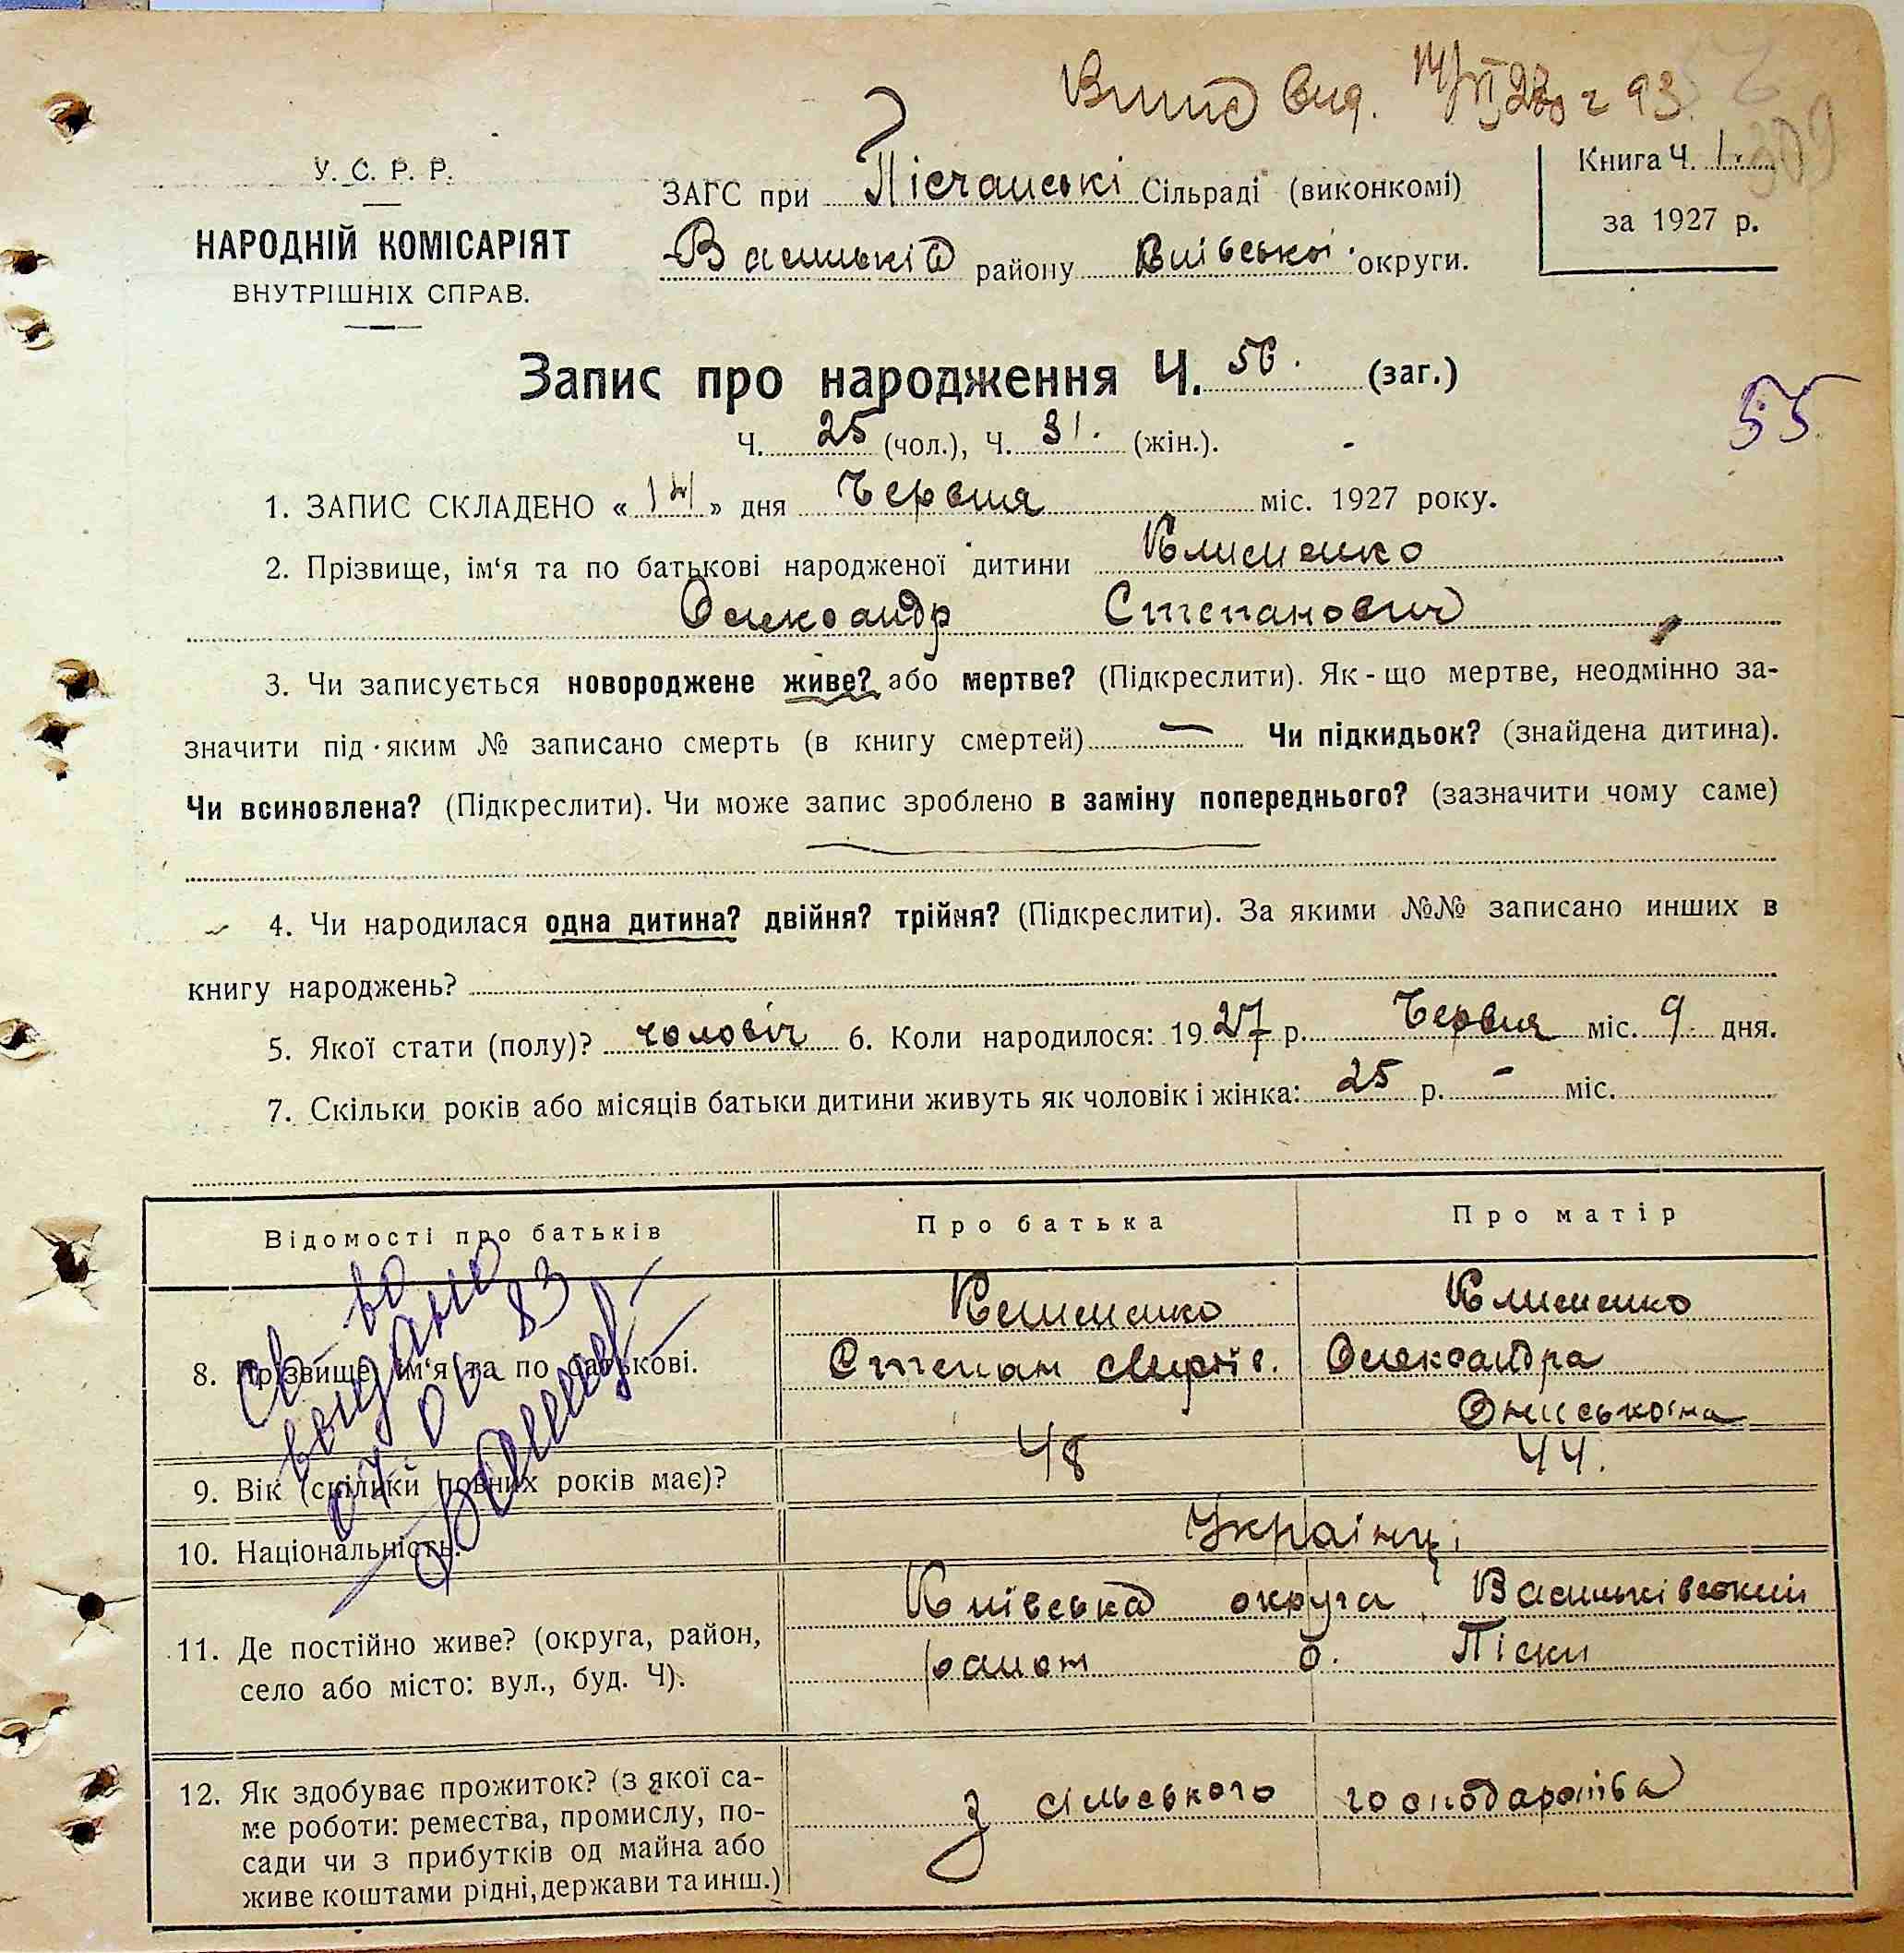 вид.
У. С. Р. Р.
НАРОДНІЙ КОМІСАРІЯТ
ВНУТРІШНІХ СПРАВ.
ЗАГС при Пісчанські Сільраді (виконкомі)
района району Київської округи.
Книга Ч. 1.
309
за 1927 р.
Запис про народження Ч. 56. (заг.)
55
Ч. 25 (чол.), Ч. 31. (жін.).
1. ЗАПИС СКЛАДЕНО « 14 » дня Червня міс. 1927 року.
2. Прізвище, ім'я та по батькові народженої дитини Клименко
Олександр Степанович
3. Чи записується новороджене живе? або мертве? (Підкреслити). Як-що мертве, неодмінно за-
значити під яким № записано смерть (в книгу смертей) — Чи підкидьок? (знайдена дитина).
Чи всиновлена? (Підкреслити). Чи може запис зроблено в заміну попереднього? (зазначити чому саме)
4. Чи народилася одна дитина? двійня? трійня? (Підкреслити). За якими №№ записано инших в
книгу народжень?
5. Якої стати (полу)? чоловіч 6. Коли народилося: 1927 р. Червня міс. 9 дня.
7. Скільки років або місяців батьки дитини живуть як чоловік і жінка: 25 р. - міс.
Відомості про батьків Про батька Про матір
8. Прізвище, ім'я та по батькові. Клименко Клименко
Степан Олександра
Ониськовна
9. Вік (скільки повних років має)? 48 44.
10. Національність. Українці
11. Де постійно живе? (округа, район, Київська округа, Васильківський
село або місто: вул., буд. Ч). район с. Піски
12. Як здобуває прожиток? (з якої са- З сільського господарства
ме роботи: ремества, промислу, по-
сади чи з прибутків од майна або
живе коштами рідні, держави та инш.)
св-во
видано